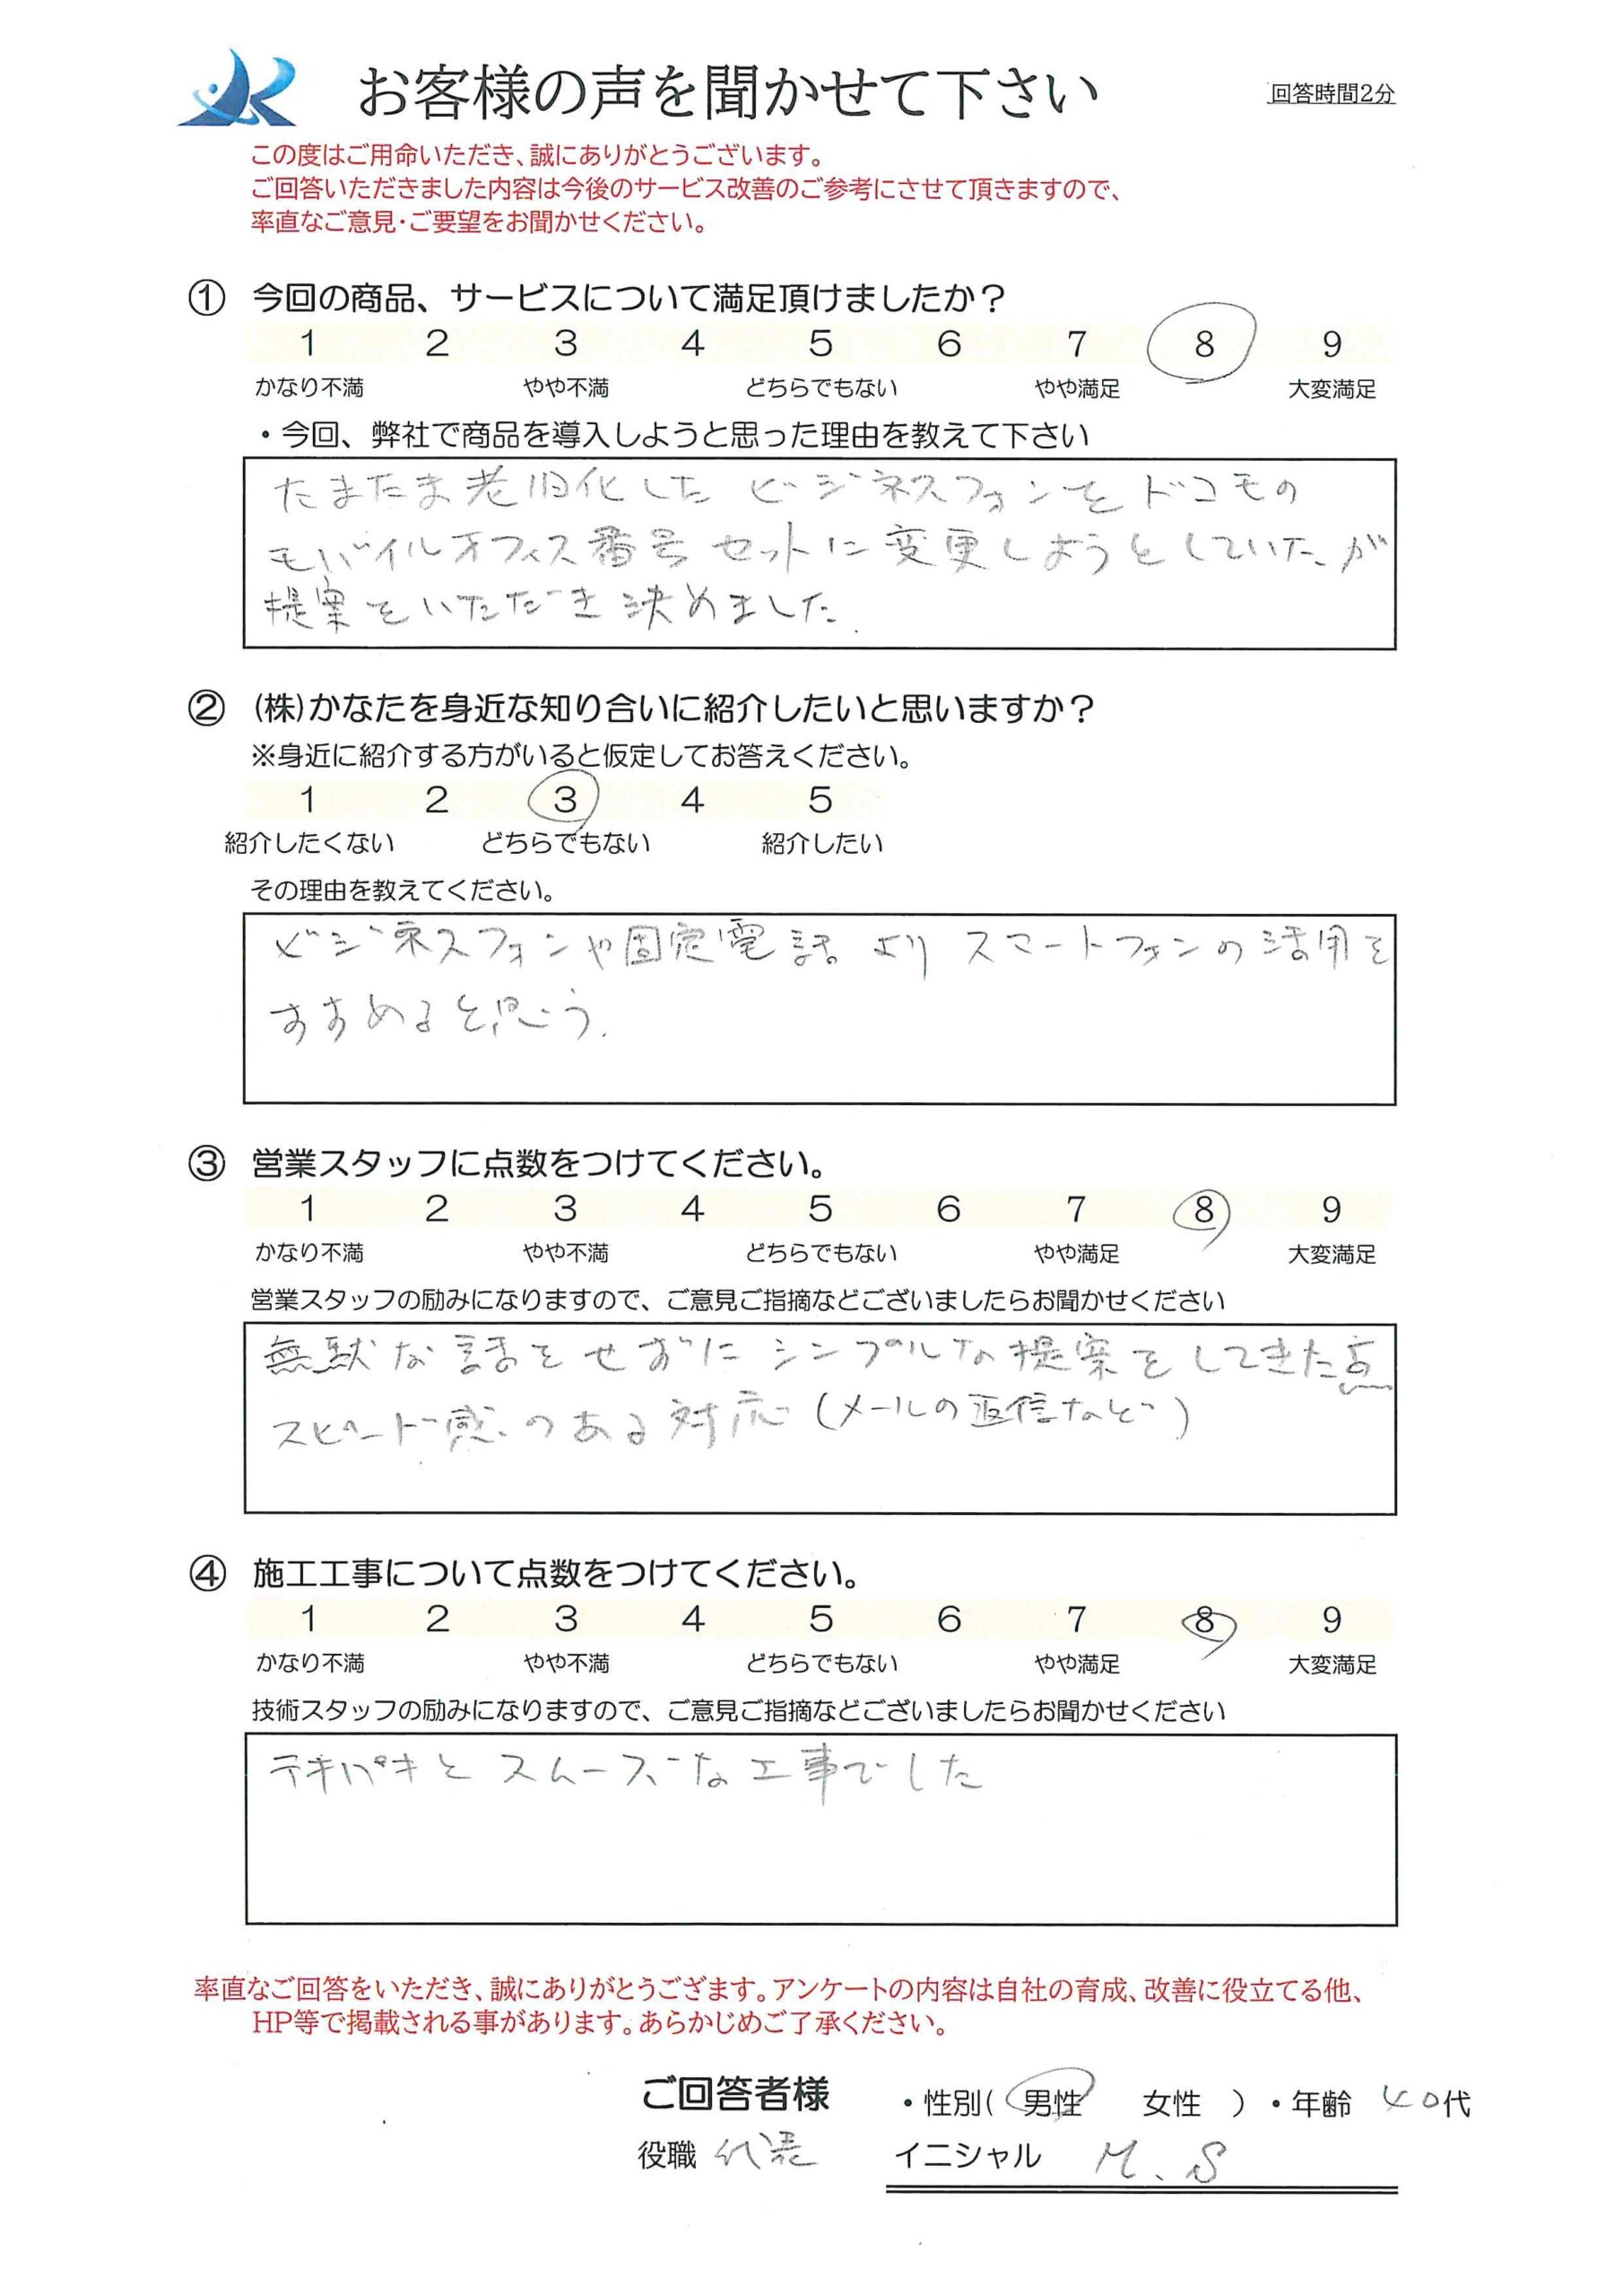 お客様の声を聞かせて下さい
回答時間2分
この度はご用命いただき、誠にありがとうございます。
ご回答いただきました内容は今後のサービス改善のご参考にさせて頂きますので、
率直なご意見・ご要望をお聞かせください。
① 今回の商品、サービスについて満足頂けましたか？
1 2 3 4 5 6 7 8 9
かなり不満 やや不満 どちらでもない やや満足 大変満足
・今回、弊社で商品を導入しようと思った理由を教えて下さい
たまたま老旧化した ビジネスフォンを ドコモの
モバイルオフィス番号 セットに変更しようとしていたが
提案をいただき決めました.
② (株)かなたを身近な知り合いに紹介したいと思いますか？
※身近に紹介する方がいると仮定してお答えください。
1 2 3 4 5
紹介したくない どちらでもない 紹介したい
その理由を教えてください。
ビジネスフォンや固定電話より スマートフォンの活用を
すすめると思う.
③ 営業スタッフに点数をつけてください。
1 2 3 4 5 6 7 8 9
かなり不満 やや不満 どちらでもない やや満足 大変満足
営業スタッフの励みになりますので、ご意見ご指摘などございましたらお聞かせください
無駄な話をせずに シンプルな提案をしてきた点
スピード感のある対応(メールの返信など)
④ 施工工事について点数をつけてください。
1 2 3 4 5 6 7 8 9
かなり不満 やや不満 どちらでもない やや満足 大変満足
技術スタッフの励みになりますので、ご意見ご指摘などございましたらお聞かせください
テキパキと スムーズな工事でした
率直なご回答をいただき、誠にありがとうござます。アンケートの内容は自社の育成、改善に役立てる他、
HP等で掲載される事があります。あらかじめご了承ください。
ご回答者様 ・性別( 男性 女性 )・年齢 40代
役職 代表 イニシャル M.S